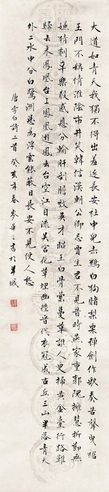 大道如青天我獨不得出羞逐長安社中兒赤雞白狗賭梨栗彈劍作歌奏苦聲曳裾
王門不稱情淮陰市井笑韓信漢朝公卿忌賈生君不見昔時燕家重郭隗擁篲折節無
嫌猜劇辛樂毅感恩分輸肝剖膽效英才昭王白骨縈蔓草誰人更掃黃金臺行路難
歸去來鳳凰台上鳳凰遊鳳去台空江自流吳宮花草埋幽徑晉代衣冠成古丘三山半落青天
外二水中分白鷺洲總為浮雲能蔽日長安不見使人愁
唐李白詩二首癸亥年春書於羊城